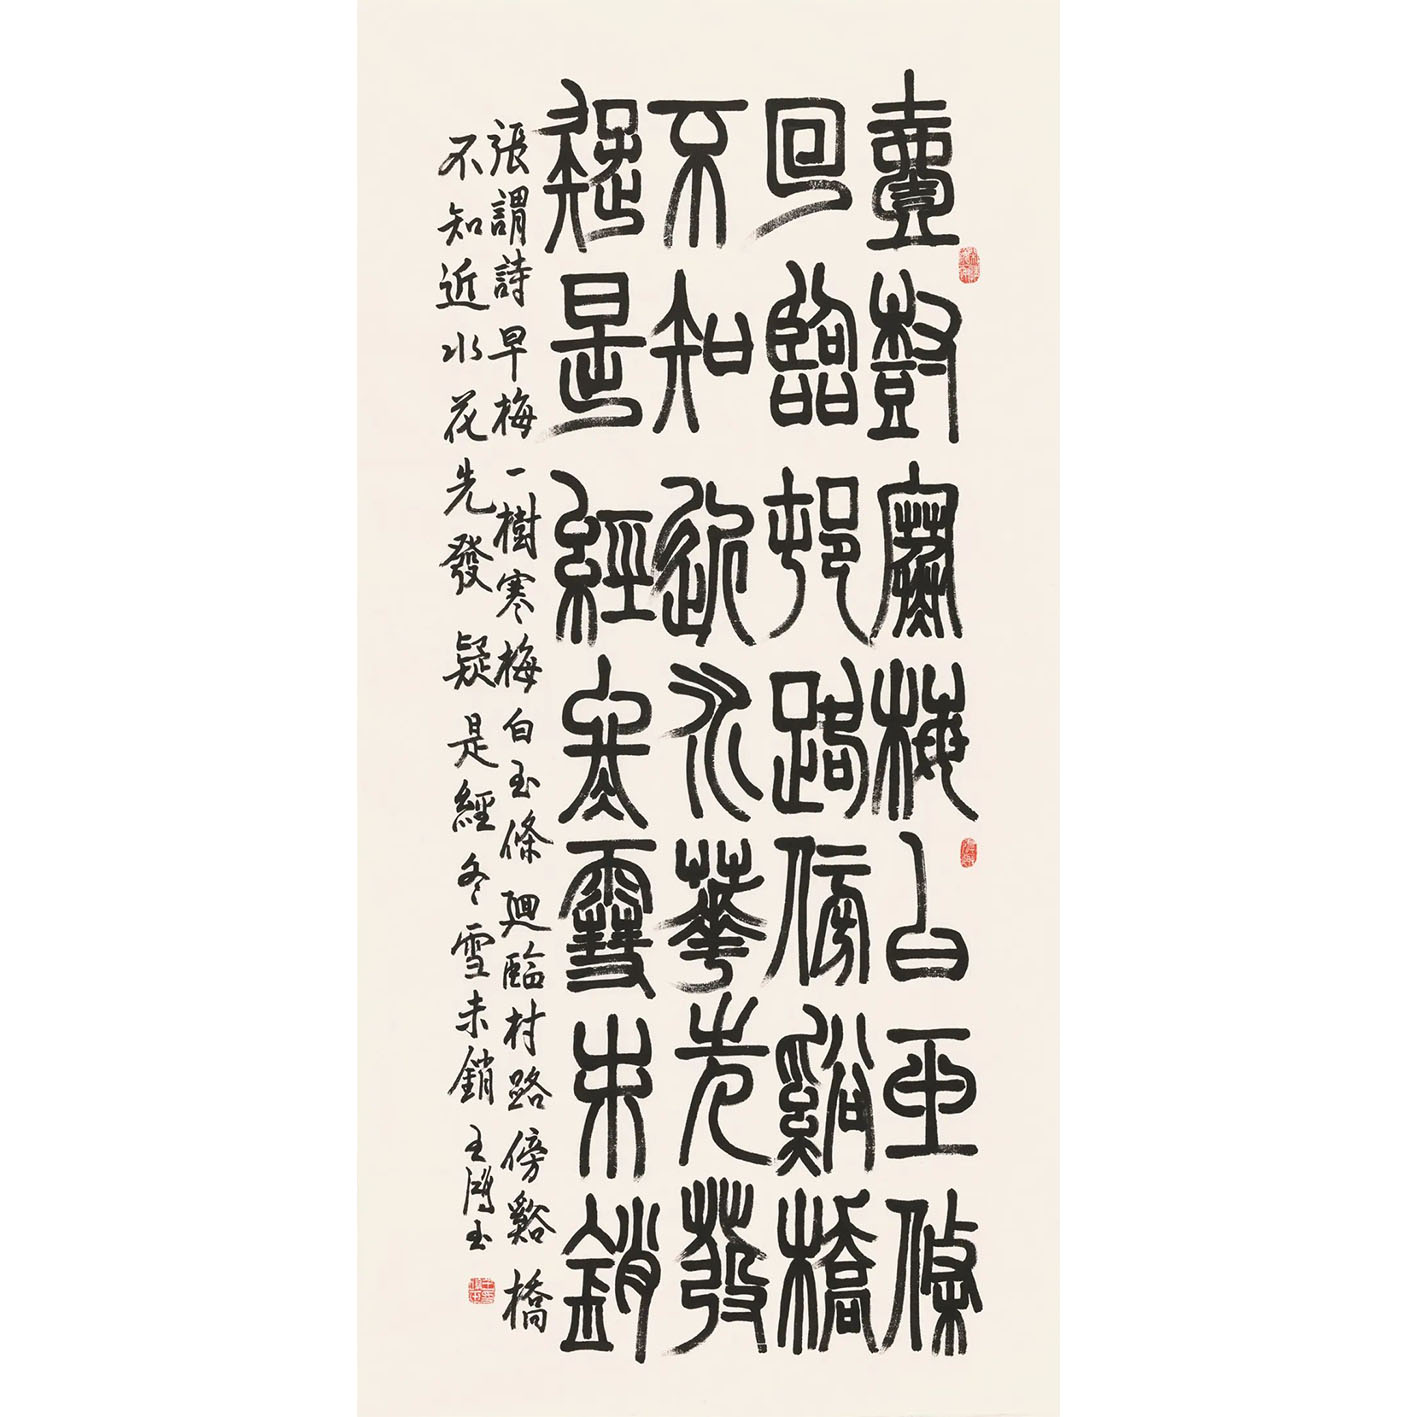 壹樹寒梅白玉條
回臨邨路傍谿橋
不知近水華先發
疑是經冬雪未銷
張謂詩早梅一樹寒梅白玉條迴臨村路傍谿橋
不知近水花先發疑是經冬雪未銷王鴻玉